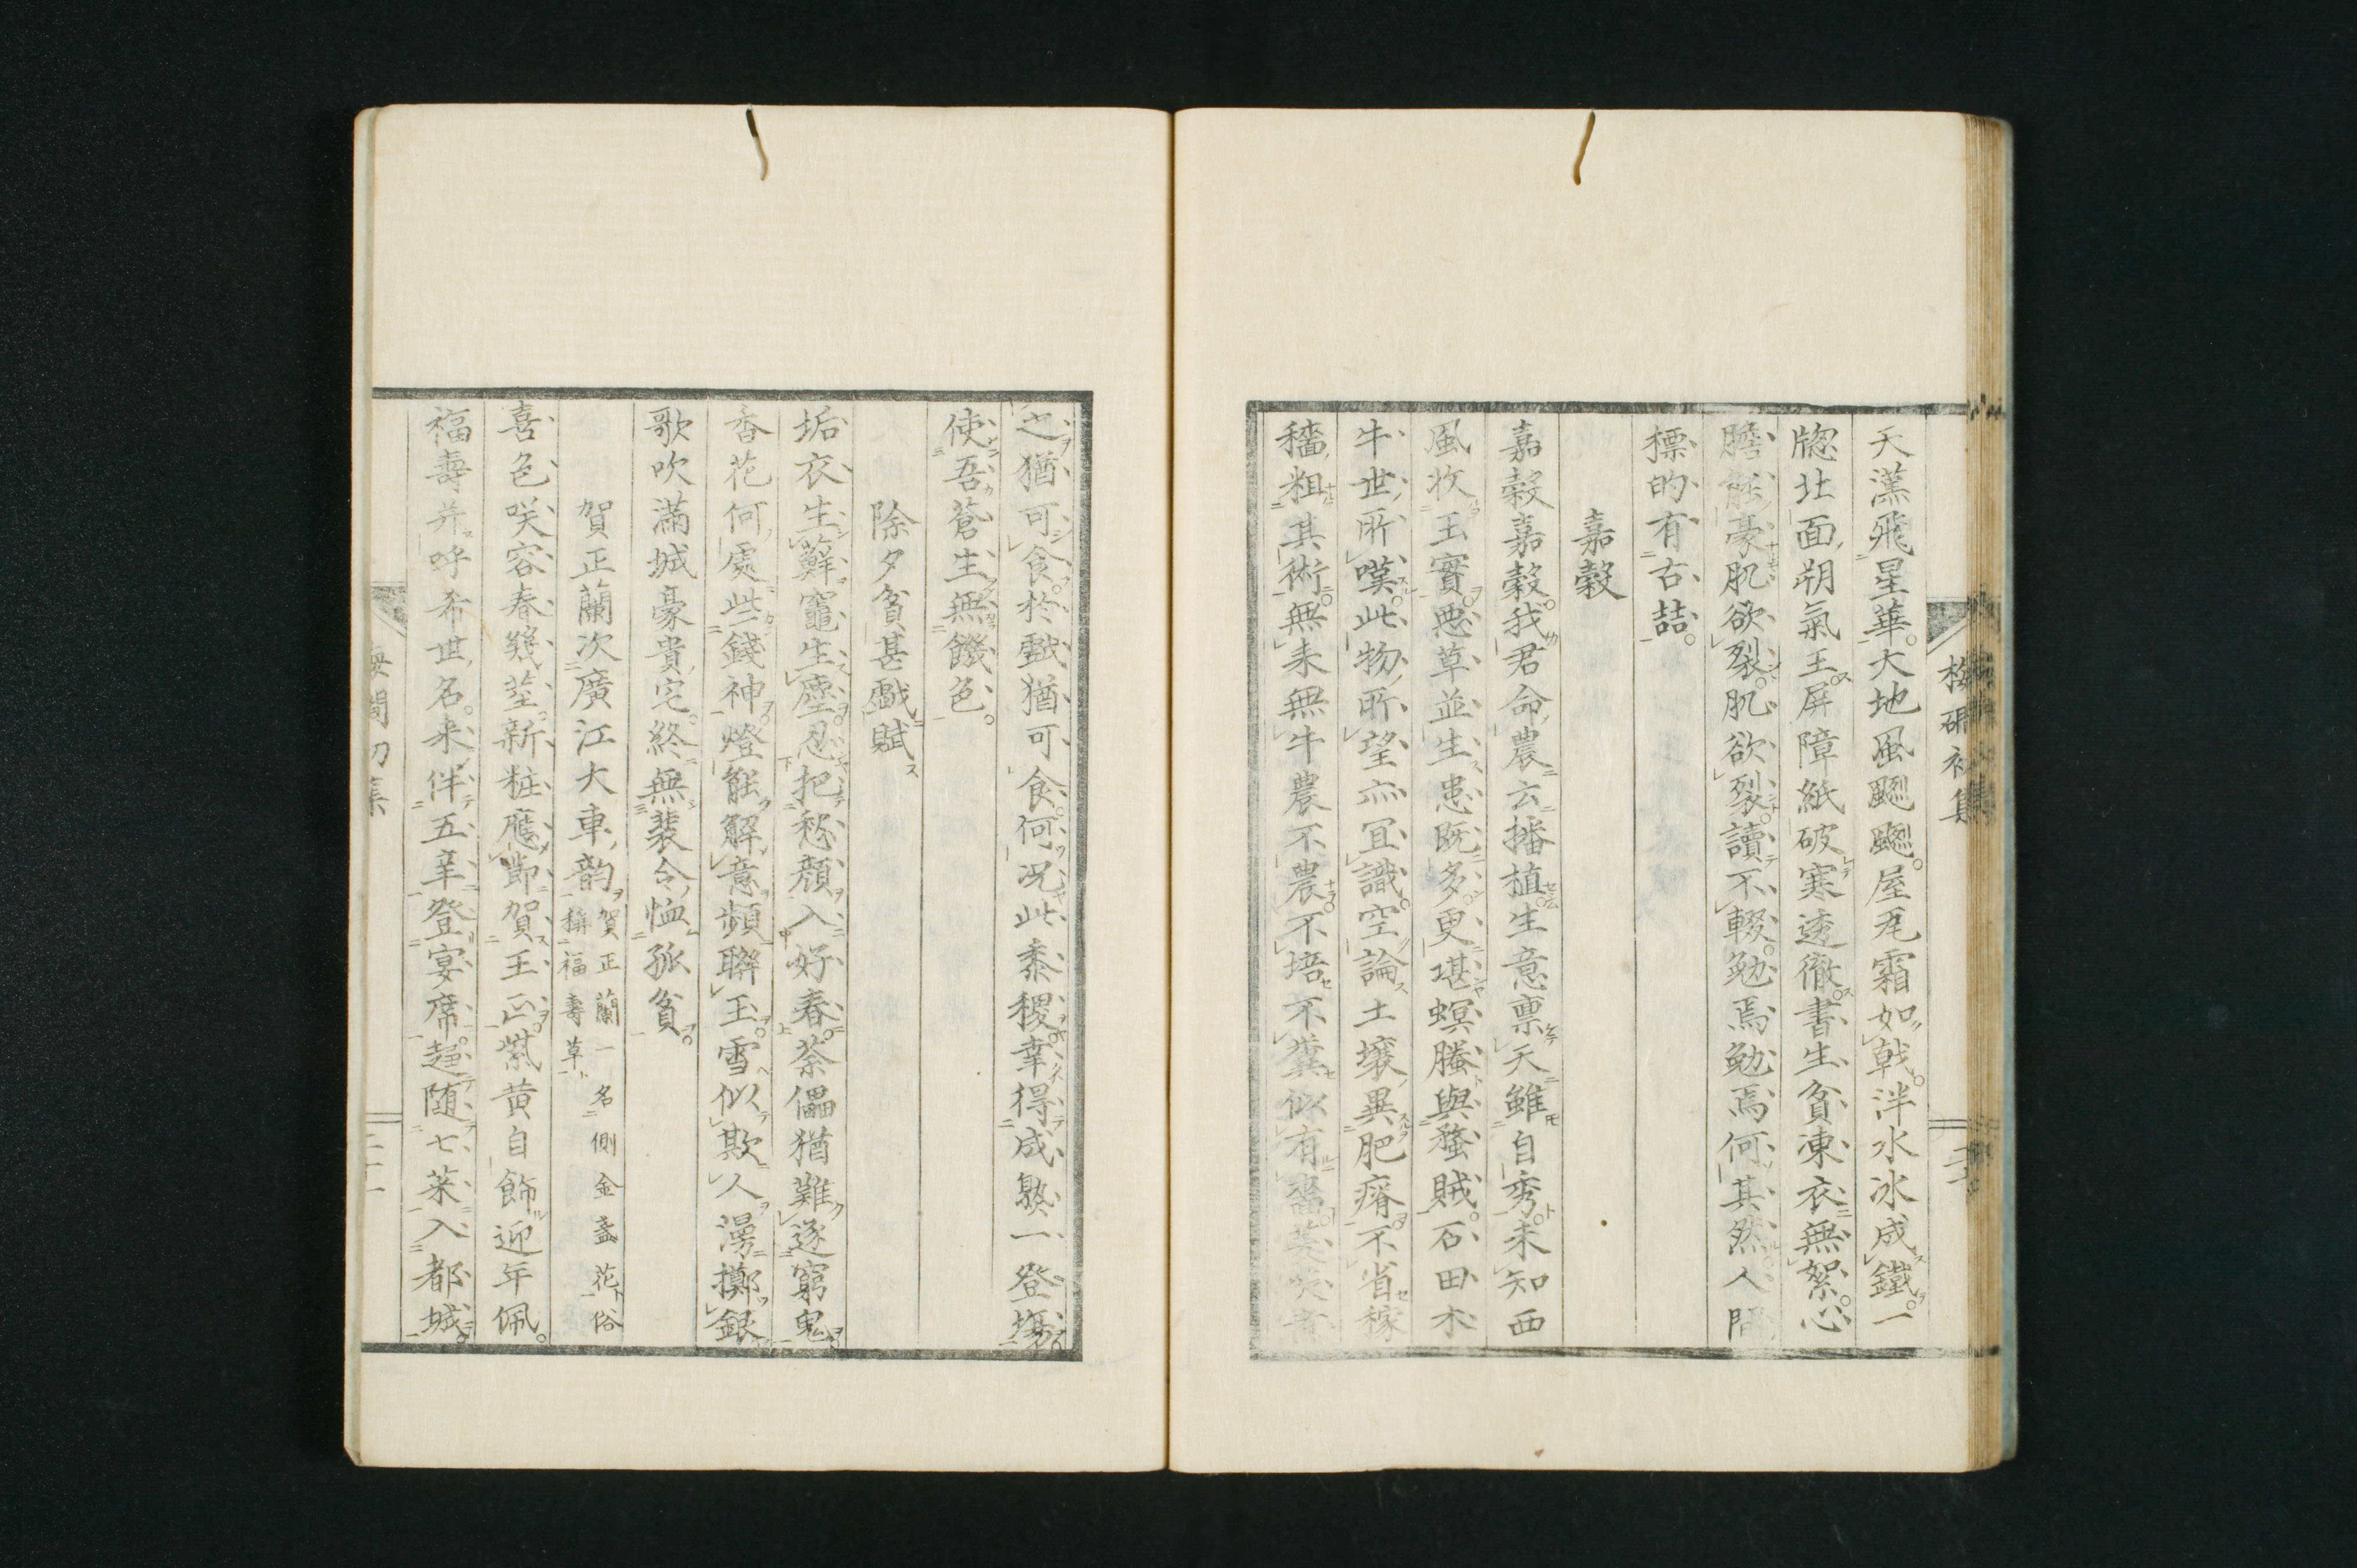 天漢飛星華。大地風飋飋。屋瓦霜如戟。泮水氷成鐵。一
牕北面朔氣王。屏障紙破寒透徹。書生貧凍衣無絮。心
膽雖豪肌欲裂。肌欲裂。讀不輟。勉焉勉焉何其然。人間
標的有古喆。
嘉穀
嘉穀嘉穀。我君命農云播植。生意禀天雖自秀。未知西
風收玉實。惡草並生患既多。更堪螟螣與蟊賊。石田木
牛世所嘆。此物所望亦冝識。空論土壤異肥瘠。不省稼
穡粗其術。無耒無牛農不農。不培不糞似有
之猶可食。於戲猶可食。何况此黍稷。幸得成熟一登塲。
使吾蒼生無饑色。
除夕貧甚戲賦
垢衣生蘚竈生塵。忍把愁顏入好春。荼儡猶難逐窮鬼。
香花何處些錢神。燈能解意頻聯玉。雪似欺人漫擲銀。
歌吹滿城豪貴宅。終無裴令恤孤貧。
賀正蘭次廣江大車韵 賀正蘭一名側金盞花俗
稱福壽草
喜色咲容春幾莖。新粧應節賀王正。紫黄自飾迎年佩。
福壽并呼希世名。来伴五辛登宴席。趍随七菜入都城。